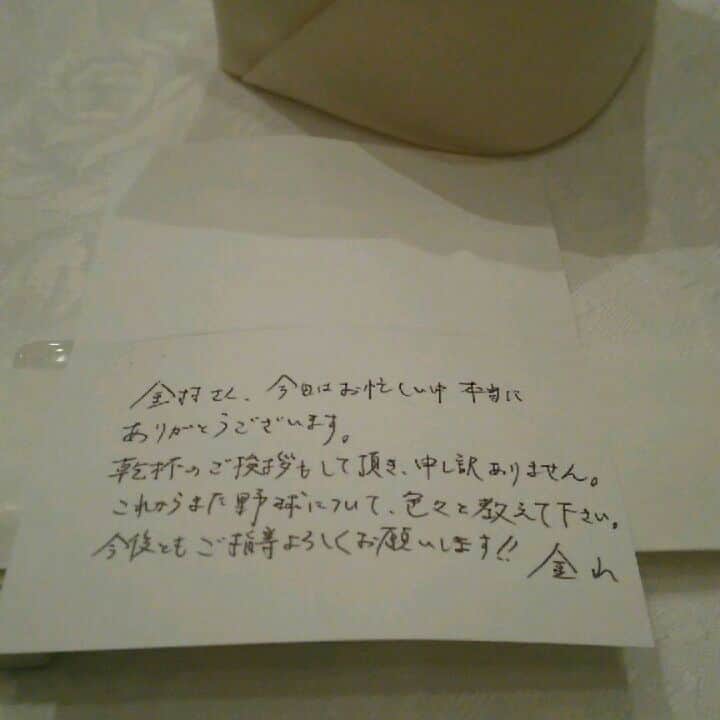 金村さん、今日はお忙しい中 本当に
ありがとうございます。
乾杯のご挨拶もして頂き、申し訳ありません。
これからまた野球について、色々と教えて下さい。
今後ともご指導よろしくお願いします!!
金山